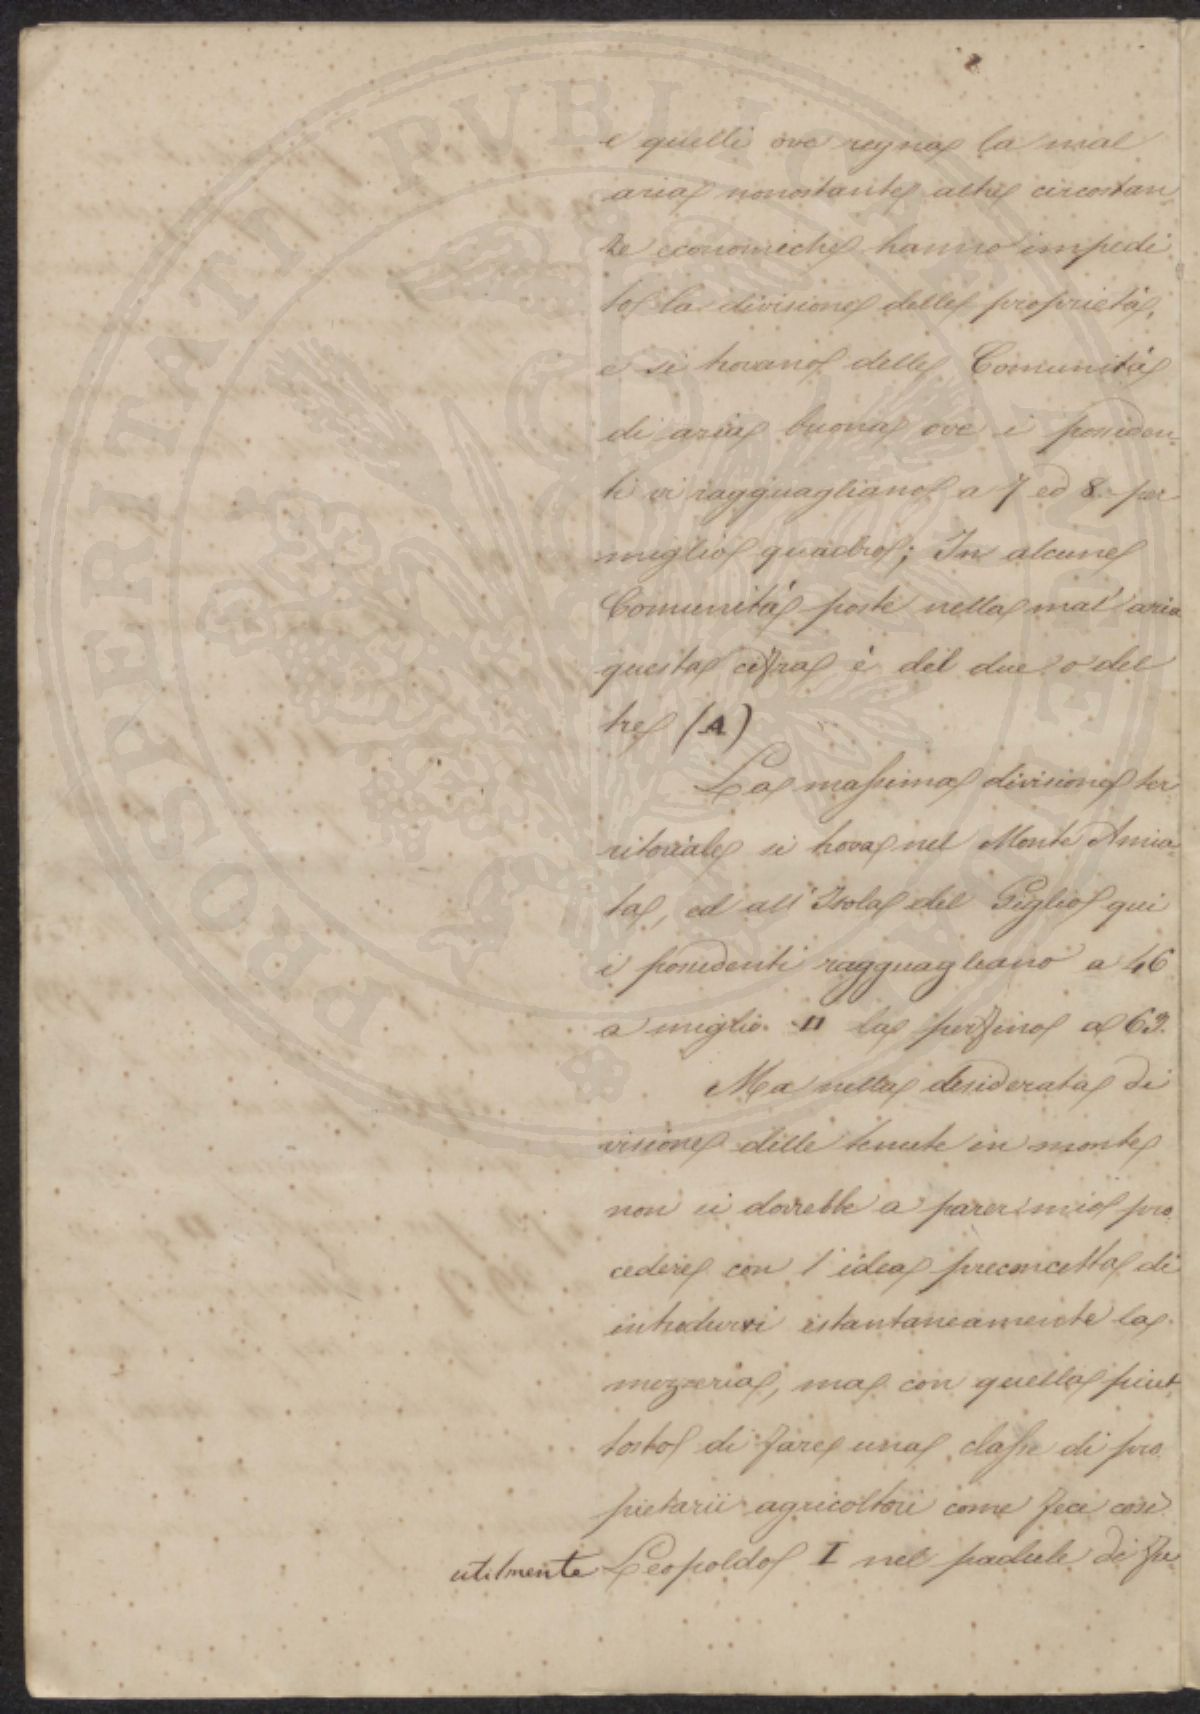 e quelli ove regna la mal
aria nonostante altre circostan
ze economiche hanno impedi
to la divisione delle proprietà,
e si trovano delle Comunità
di aria buona ove i possiden=
ti vi ragguagliano a 7 ed 8 per
miglio quadro; In alcune
Comunità poste nella mal'aria
questa cifra è del due o del
tre (A)
La massima divisione ter
ritoriale si trova nel Monte Amia
ta, ed all'Isola del Giglio qui
i possedenti ragguagliano a 46
a miglio. là perfino a 69.
Ma nella desiderata di
visione delle tenute in monte
non si dovrebbe a parer mio pro
cedere con l'idea preconcetta di
introdurvi istantaneamente la
mezzeria, ma con quella piut
tosto di fare una classe di pro
pietarii agricoltori come fece così
utilmente Leopoldo I nel padule di Fu
PROSPERITATI PVBLICAE AVGENDAE